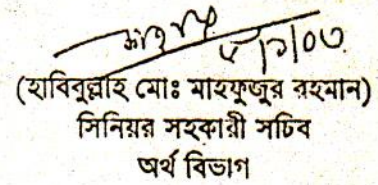 (হাবিবুল্লাহ মোঃ মাহফুজুর রহমান)
সিনিয়র সহকারী সচিব
অর্থ বিভাগ